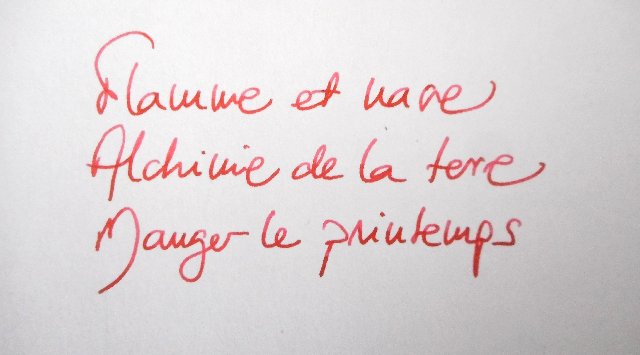 Flamme et nacre
Alchimie de la terre
Manger le printemps